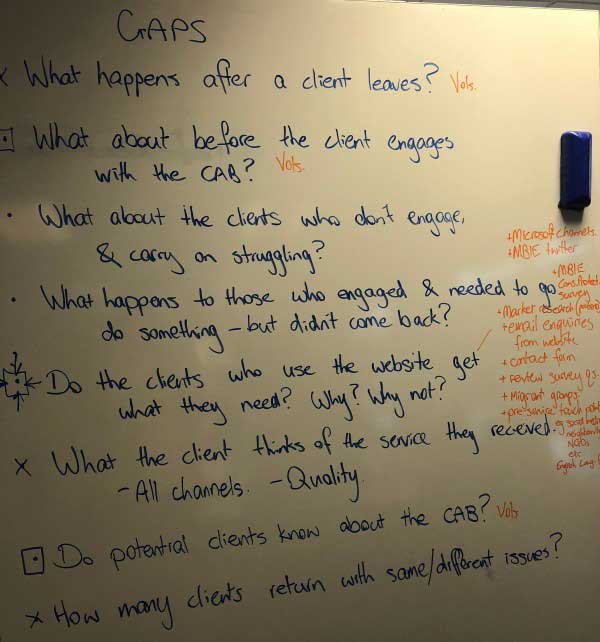 GAPS
x What happens after a client leaves? Vols.
What about before the client engages
with the CAB? Vols.
• What about the clients who don't engage,
& carry on struggling?
• What happens to those who engaged & needed to go
do something – but didn't come back?
Do the clients who use the website get
what they need? Why? Why not?
x What the client thinks of the service they received.
– All channels. – Quality.
Do potential clients know about the CAB? Vols
x How many clients return with same/different issues?
+ Microsoft channels.
+ MBIE twitter
+ MBIE
Survey
+ Market research
+ email enquiries
from website
+ contact form
+ review survey qs.
+ Migrant groups.
+ pre service touch
eg social
NGOs
etc
English Lang